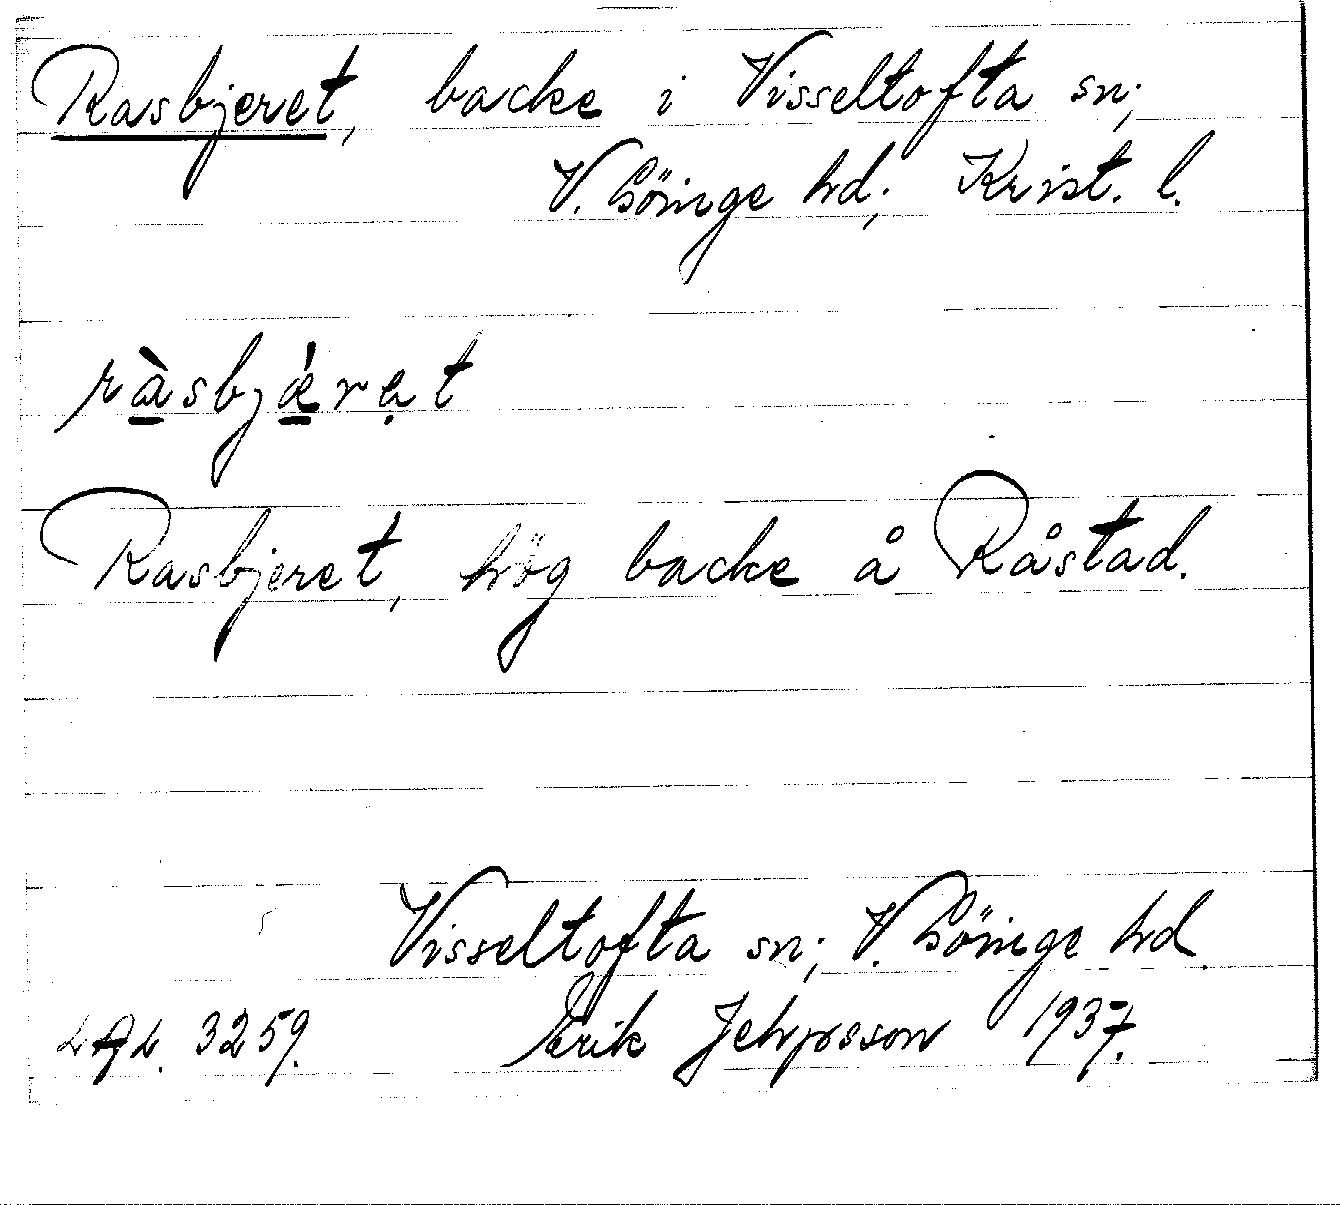 Rasbjeret, backe i Visseltofta sn;
V. Göinge hd; Krist. l.
ràsbjǽrət
Rasbjeret, hög backe å Råstad.
Visseltofta sn; V. Göinge hd.
3259. Erik Jehpsson 1937.